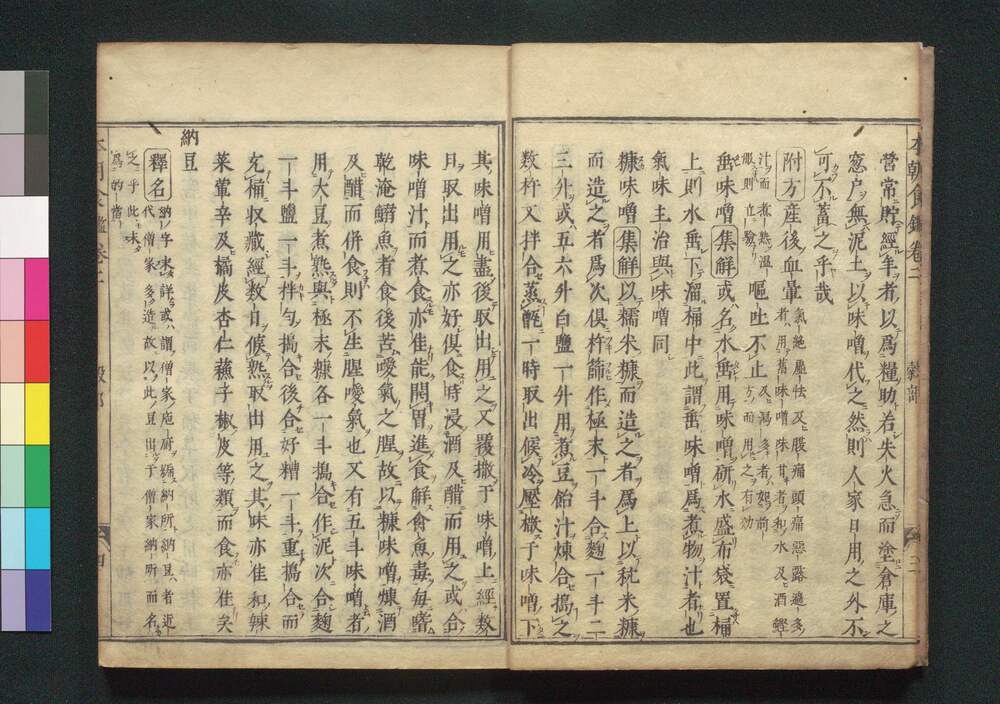 本朝食鑑卷二　穀部　三
營常貯經年者以爲糧助若失火急而塗倉庫之
窓戶無泥土以味噌代之然則人家日用之外不
可不蓄之乎哉
附方 產後血暈 氣絶尫怯及腹痛頭痛惡露過多者用舊味噌味甘者和水及酒鰹汁而煮熟溫服則立驗 嘔吐不止 及瀉多者如前方而用之有効
垂味噌 集解 或名水垂用味噌硏水盛布袋置桶
上則水垂下溜桶中此謂垂味噌爲煮物汁者也
氣味主治與味噌同
糠味噌 集解 以糯米糠而造之者爲上以秔米糠
而造之者爲次俱杵篩作極末一斗合麴一斗二
三升或五六升白鹽一升用煮豆飴汁煉合搗之
數杵又拌合蒸甑一時取出候冷壓檄于味噌下
其味噌用盡後取出用之又覆撒于味噌上經數
日取出用之亦好俱食時浸酒及醋而用之或合
味噌汁而煮食亦佳能開胃進食解食魚毒每嗜
乾淹鰯魚者食後苦噯氣之腥故以糠味噌煉酒
及醋而併食則不生腥噯氣也又有五斗味噌者
用大豆煮熟與極末糠各一斗搗合作泥次合麴
一斗鹽一斗拌勻搗合後合好糟一斗重搗合而
充桶収藏經數日候熟取出用之其味亦佳和辣
菜葷辛及橘皮杏仁蘓子椒皮等類而食亦佳矣
納豆
釋名 納字未詳或謂僧家庖厨號納所納豆者近代僧家多造故以此豆出于僧家納所而名之乎此味爲的當
本朝食鑑卷二　穀部　四